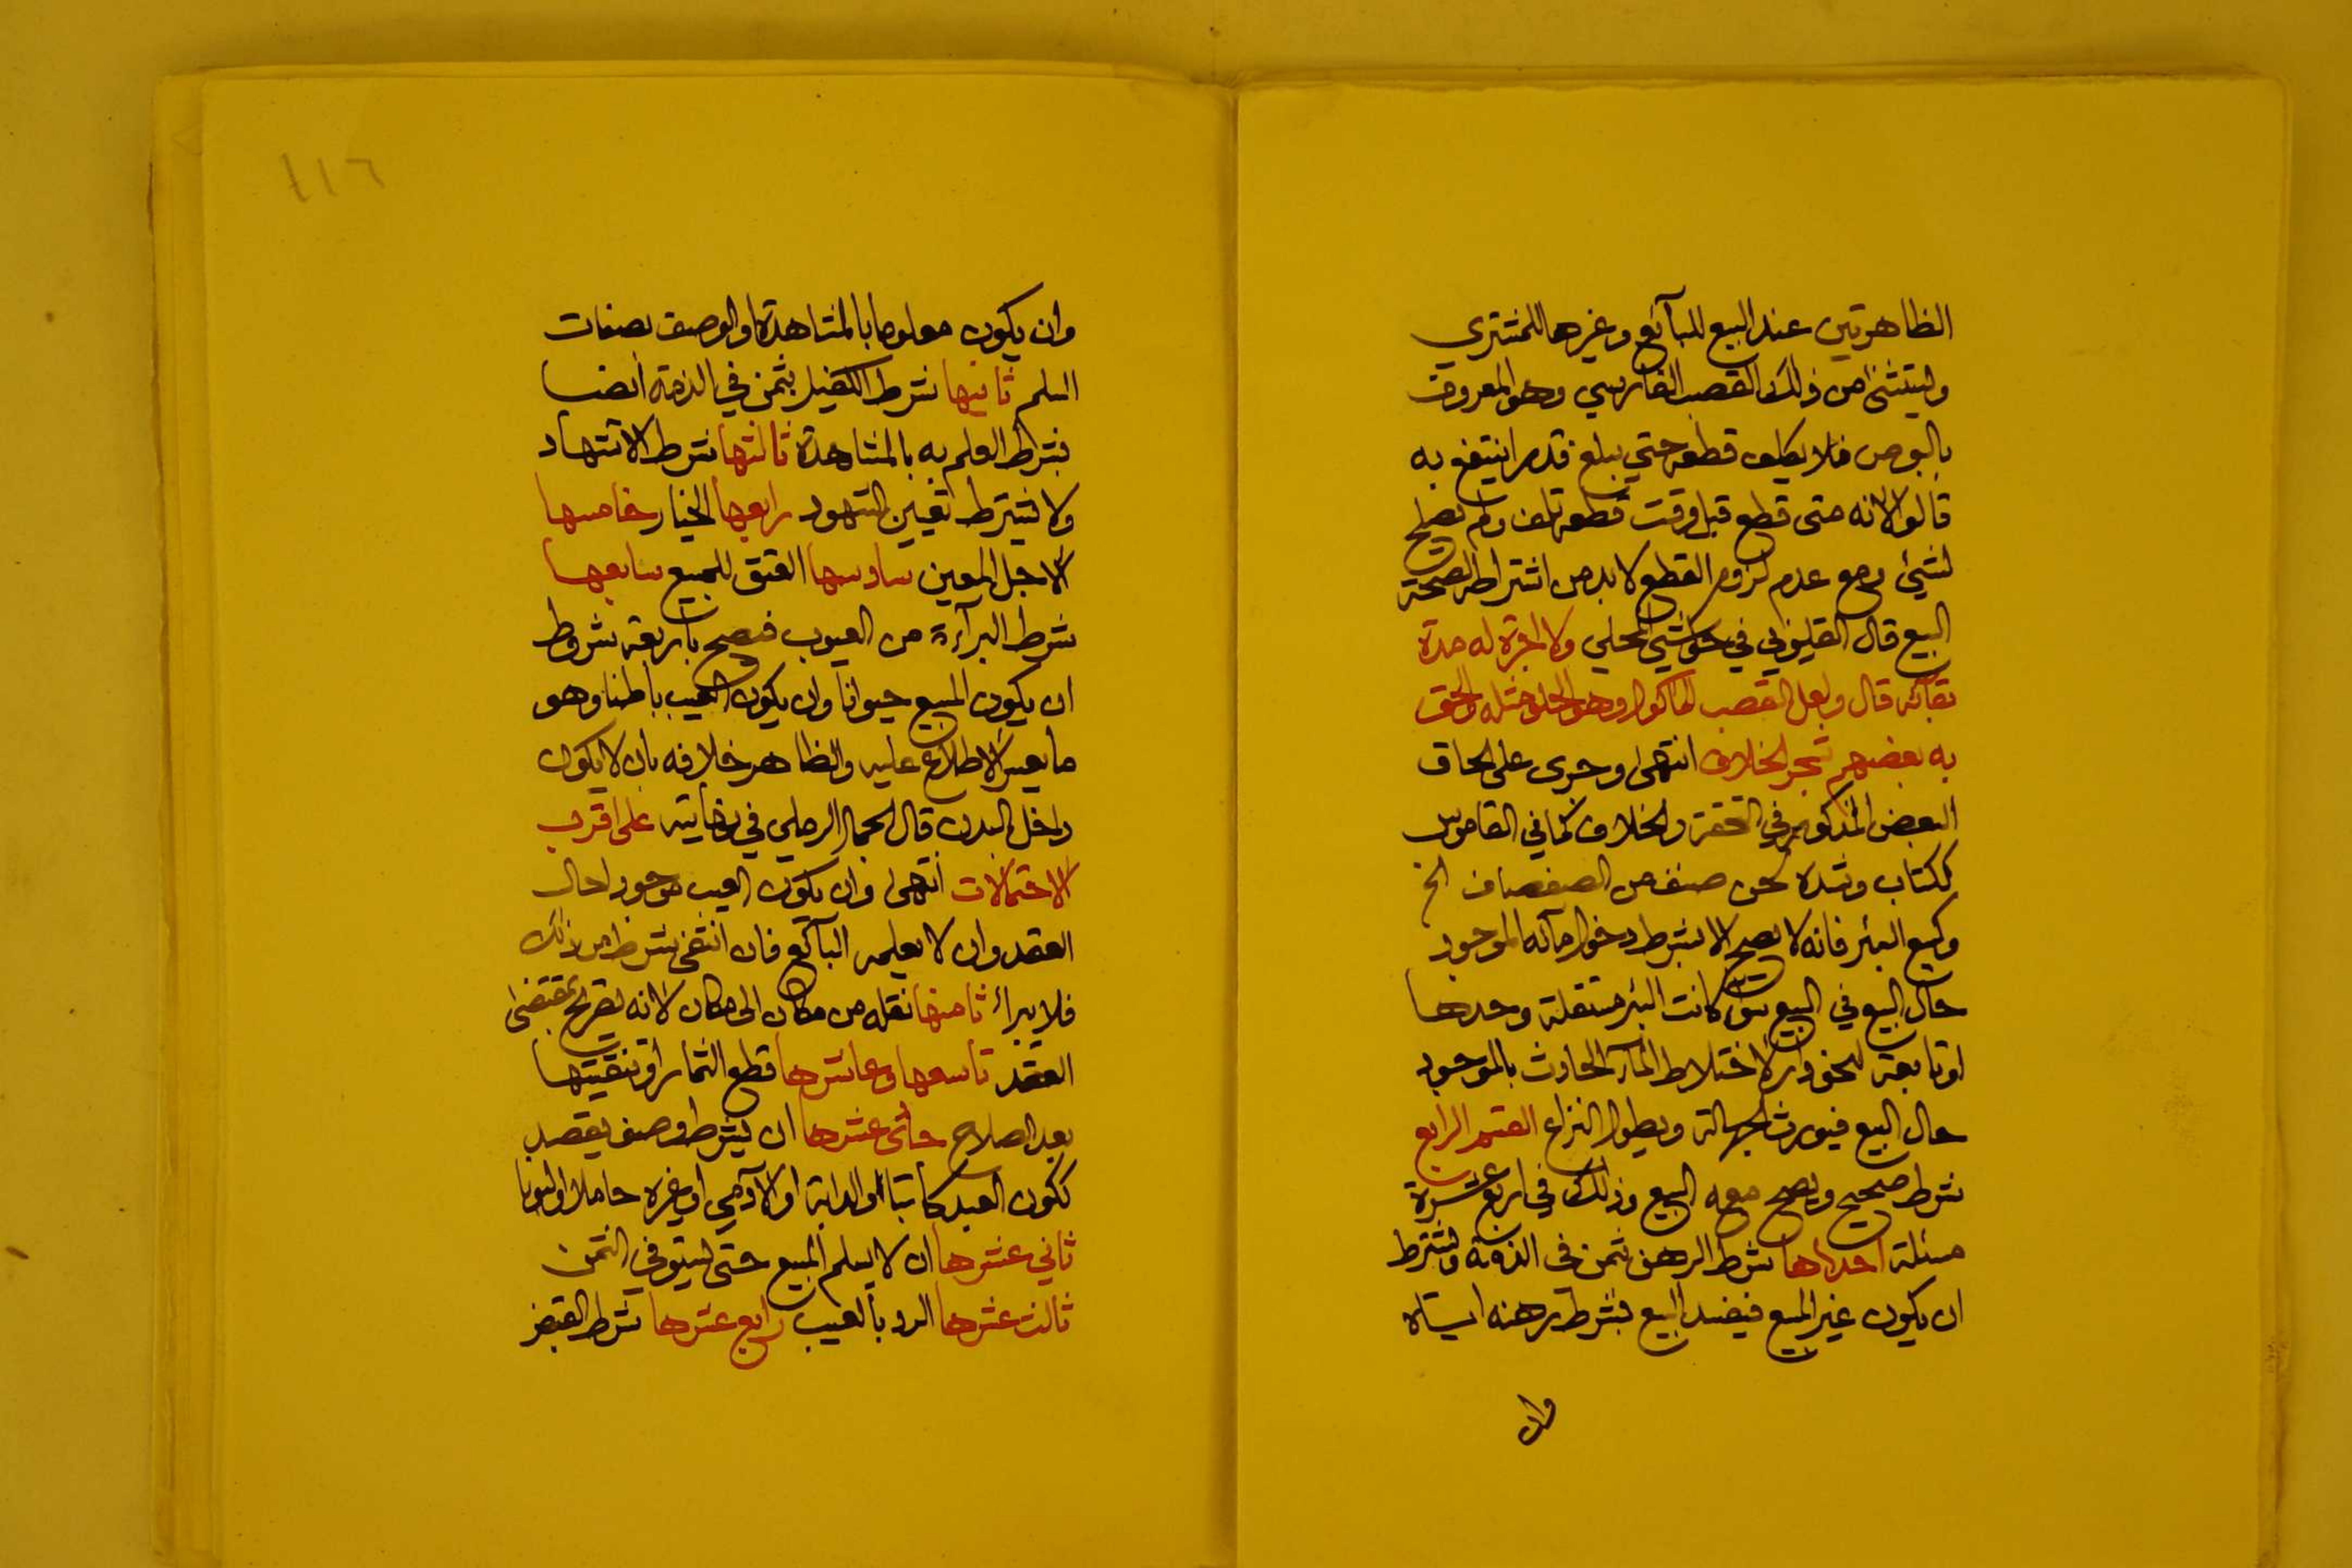 الظاهرتين عند البيع للبآئع وغيرها للمشتري
ويستثنى من ذلك القصب الفارسي وهو المعروف
بالبوص فلا يكلف قطعه حتي يبلغ قدرا ينتفع به
قالوا لانه متى قطع قبل وقت قطعه تلف ولم يصلح
لشيئ ومع عدم لزوم القطع لا بد من اشتراطه لصحة
البيع قال القليوبي في حواشي المحلي ولا اجرة له مدة
بقآئه قال ولعل القصب المأكول وهو الحلو مثله والحق
به بعضهم شجر الخلاف انتهى وجرى على الحاق
البعض المذكور في التحفة والخلاف كما في القاموس
ككتاب وشده لحن صنف من الصفصاف الخ
وكبيع البئر فانه لا يصح الا بشرط دخول مآئه الموجود
حال البيع في البيع سوآ كانت البئر مستقلة وحدها
او تابعة لنحو دار لاختلاط المآء الحادث بالموجود
حال البيع فيورث الجهالة ويطول النزاع القسم الرابع
شرط صحيح ويصح معه البيع وذلك في اربع عشرة
مسئلة احداها شرط الرهن بثمن في الذمة ويشترط
ان يكون غير المبيع فيفسد البيع بشرط رهنه اياه
وان
١١٦
وان يكون معلوما بالمشاهدة او الوصف بصفات
السلم ثانيها شرط الكفيل بثمن في الذمة ايضا
بشرط العلم به بالمشاهدة ثالثها شرط الاشهاد
ولا يشترط تعيين الشهود رابعها الخيار خامسها
الاجل المعين سادسها العتق للمبيع سابعها
شرط البرآءة من العيوب فيصح باربعة شروط
ان يكون المبيع حيوانا وان يكون العيب باطنا وهو
ما يعسر الاطلاع عليه والظاهر خلافه بان لا يكون
داخل البدن قال الجمال الرملي في نهايته على اقرب
الاحتمالات انتهى وان يكون العيب موجودا حال
العقد وان لا يعلمه البآئع فان انتفى شرط من ذلك
فلا يبرأ ثامنها نقله من مكان الى مكان لانه تصريح بمقتضى
العقد تاسعها وعاشرها قطع الثمار او تبقيتها
بعد الصلاح حادي عشرها ان يشرط وصف يقصد
ككون العبد كاتبا او الدابة او الآدمي او غيره حاملا او لبونا
ثاني عشرها ان لا يسلم المبيع حتى يستوفي الثمن
ثالث عشرها الرد بالعيب رابع عشرها شرط القبض